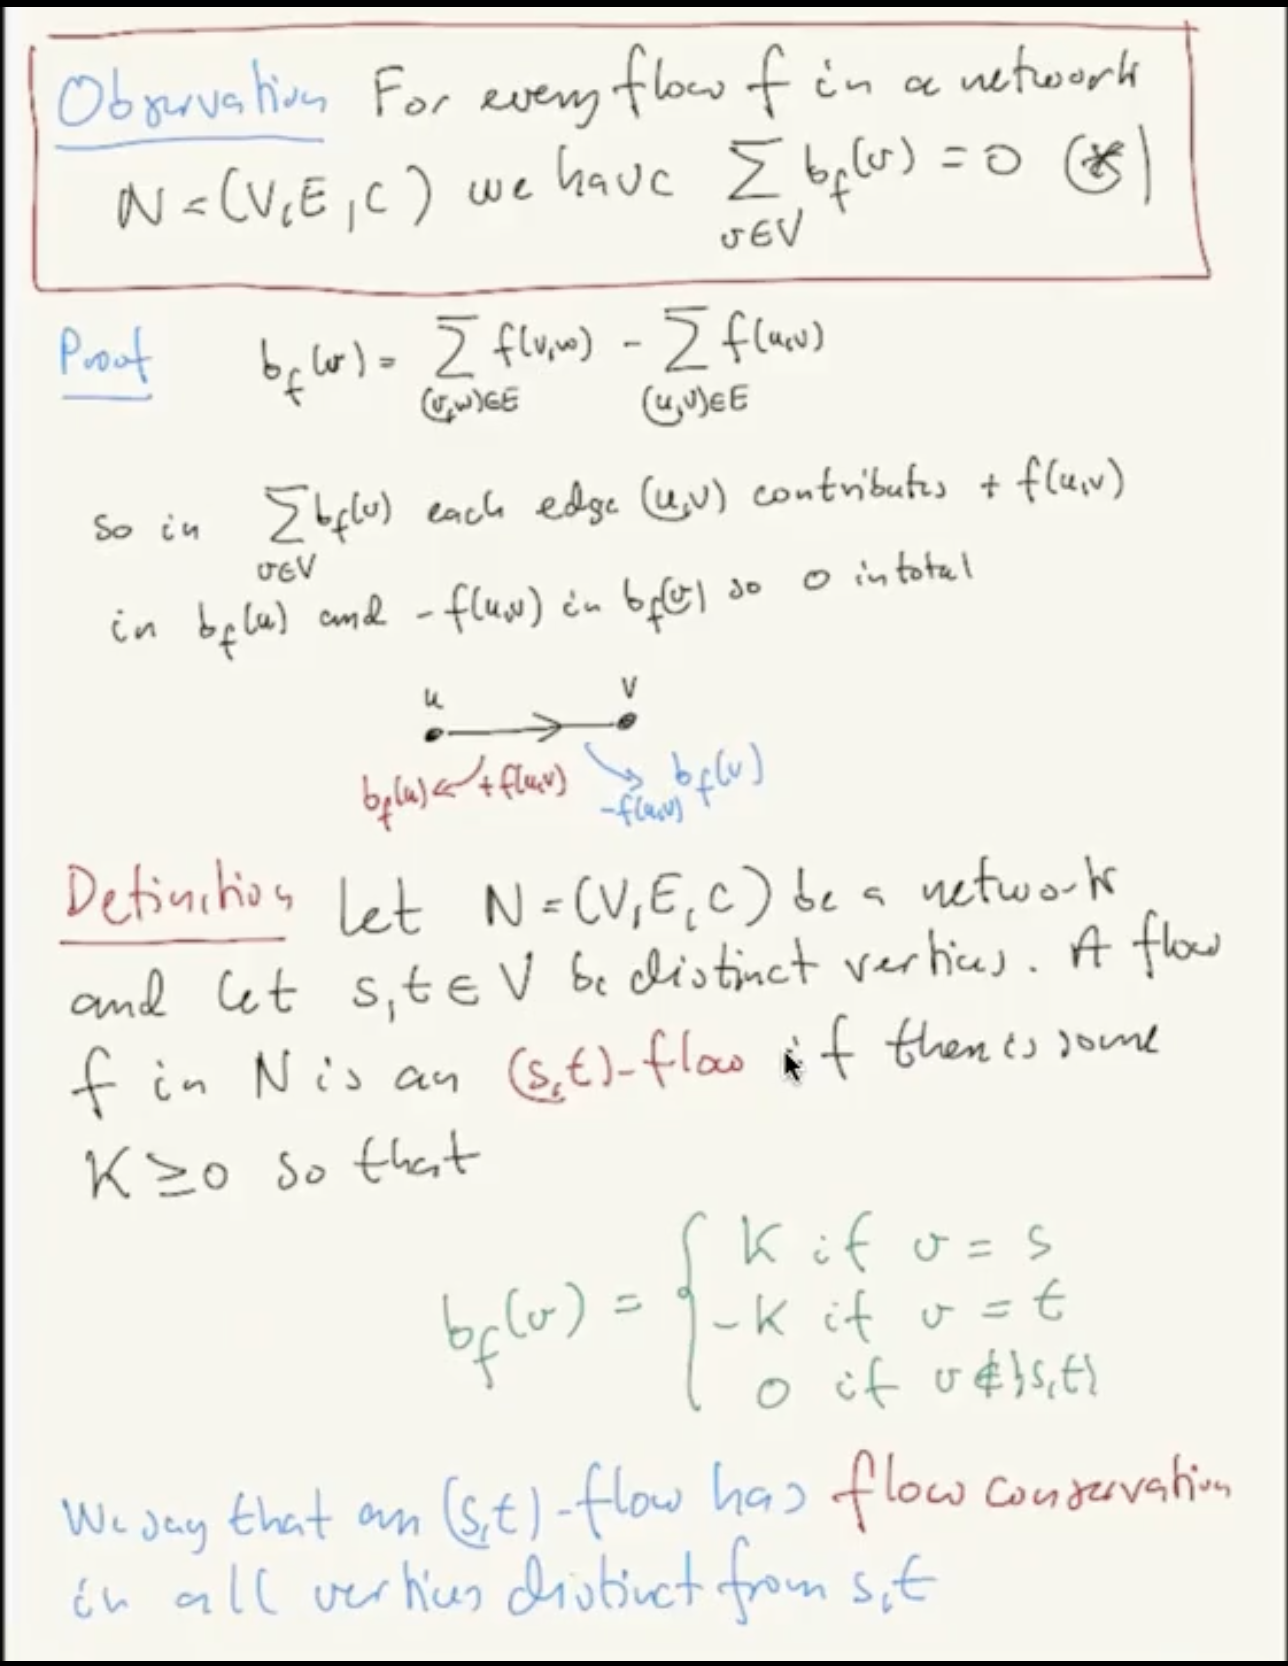 Observation For every flow f in a network
N = (V, E, c) we have ∑ b_f(v) = 0 (*)
v∈V
Proof b_f(v) = ∑ f(v,w) - ∑ f(u,v)
(v,w)∈E (u,v)∈E
So in ∑ b_f(v) each edge (u,v) contributes + f(u,v)
v∈V
in b_f(u) and - f(u,v) in b_f(v) so 0 in total
u v
b_f(u) ← +f(u,v) b_f(v)
-f(u,v)
Definition Let N = (V, E, c) be a network
and let s,t ∈ V be distinct vertices. A flow
f in N is an (s,t)-flow if there is some
K ≥ 0 so that
K if v = s
b_f(v) = { -K if v = t
0 if v ∉ {s,t}
We say that an (s,t)-flow has flow conservation
in all vertices distinct from s,t